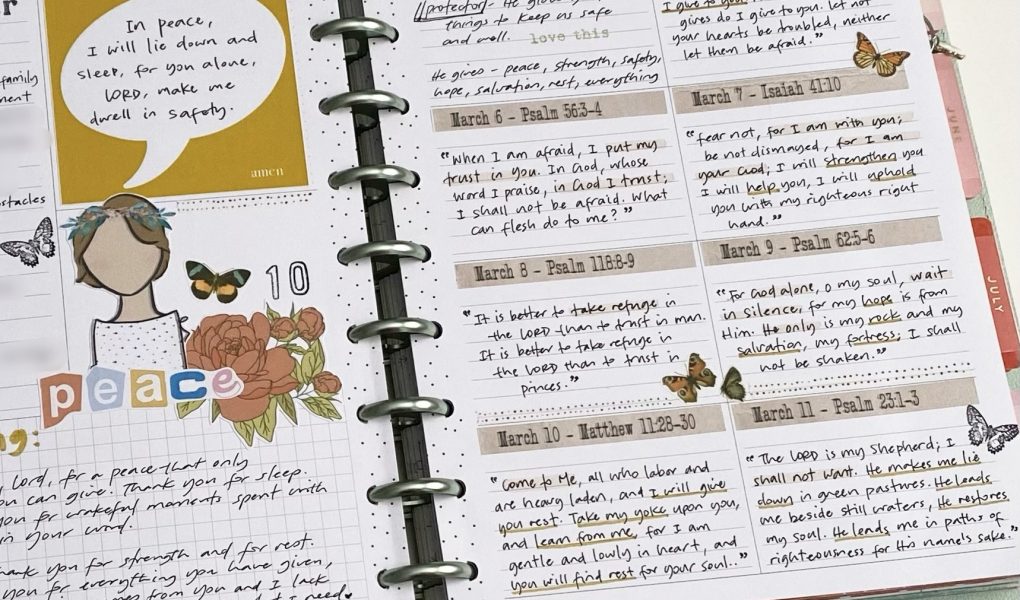 In peace,
I will lie down and
sleep, for you alone,
LORD, make me
dwell in safety.
amen
family
10
peace
Lord, for a peace that only
can give. Thank you for sleep.
you for wakeful moments spent with
in your word.
thank you for strength and for rest.
you for everything you have given,
from you and I lack
I need
protector)- He
things to keep us safe
and well. love this
He gives - peace, strength, safety,
hope, salvation, rest, everything
I give to you.
gives do I give to you. let not
your hearts be troubled, neither
let them be afraid."
March 6 - Psalm 56:3-4
"When I am afraid, I put my
trust in you. In God, whose
word I praise, in God I trust;
I shall not be afraid. What
can flesh do to me?"
March 7 - Isaiah 41:10
"fear not, for I am with you;
be not dismayed, for I am
your God; I will strengthen you
I will help you, I will uphold
you with my righteous right
hand."
March 8 - Psalm 118:8-9
"It is better to take refuge in
the LORD than to trust in man.
It is better to take refuge in
the LORD than to trust in
princes."
March 9 - Psalm 62:5-6
"For God alone, o my soul, wait
in silence, for my hope is from
Him. He only is my rock and my
salvation, my fortress; I shall
not be shaken."
March 10 - Matthew 11:28-30
"Come to Me, all who labor and
are heavy laden, and I will give
you rest. Take my yoke upon you,
and learn from me, for I am
gentle and lowly in heart, and
you will find rest for your soul.."
March 11 - Psalm 23:1-3
"The LORD is my Shepherd; I
shall not want. He makes me lie
down in green pastures. He leads
me beside still waters, He restores
my soul. He leads me in paths of
righteousness for His name's sake."
JUNE
JULY